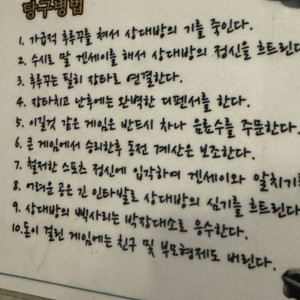 당구병법
1. 가급적 후루꾸를 쳐서 상대방의 기를 죽인다.
2. 수시로 말 겐세이를 해서 상대방의 정신을 흐트린
3. 후루꾸는 필히 장타로 연결한다.
4. 장타치고 난후에는 완벽한 디펜서를 한다.
5. 이길것 같은 게임은 반드시 차나 음료수를 주문한다.
6. 큰 게임에서 승리한후 동전 계산은 보조한다.
7. 철저한 스포츠 정신에 입각하여 겐세이와 알치기
8. 어려운 공은 긴 인타발로 상대방의 심기를 흐트린다
9. 상대방의 삑사리는 박장대소로 응수한다.
10. 돈이 걸린 게임에는 친구 및 부모형제도 버린다.